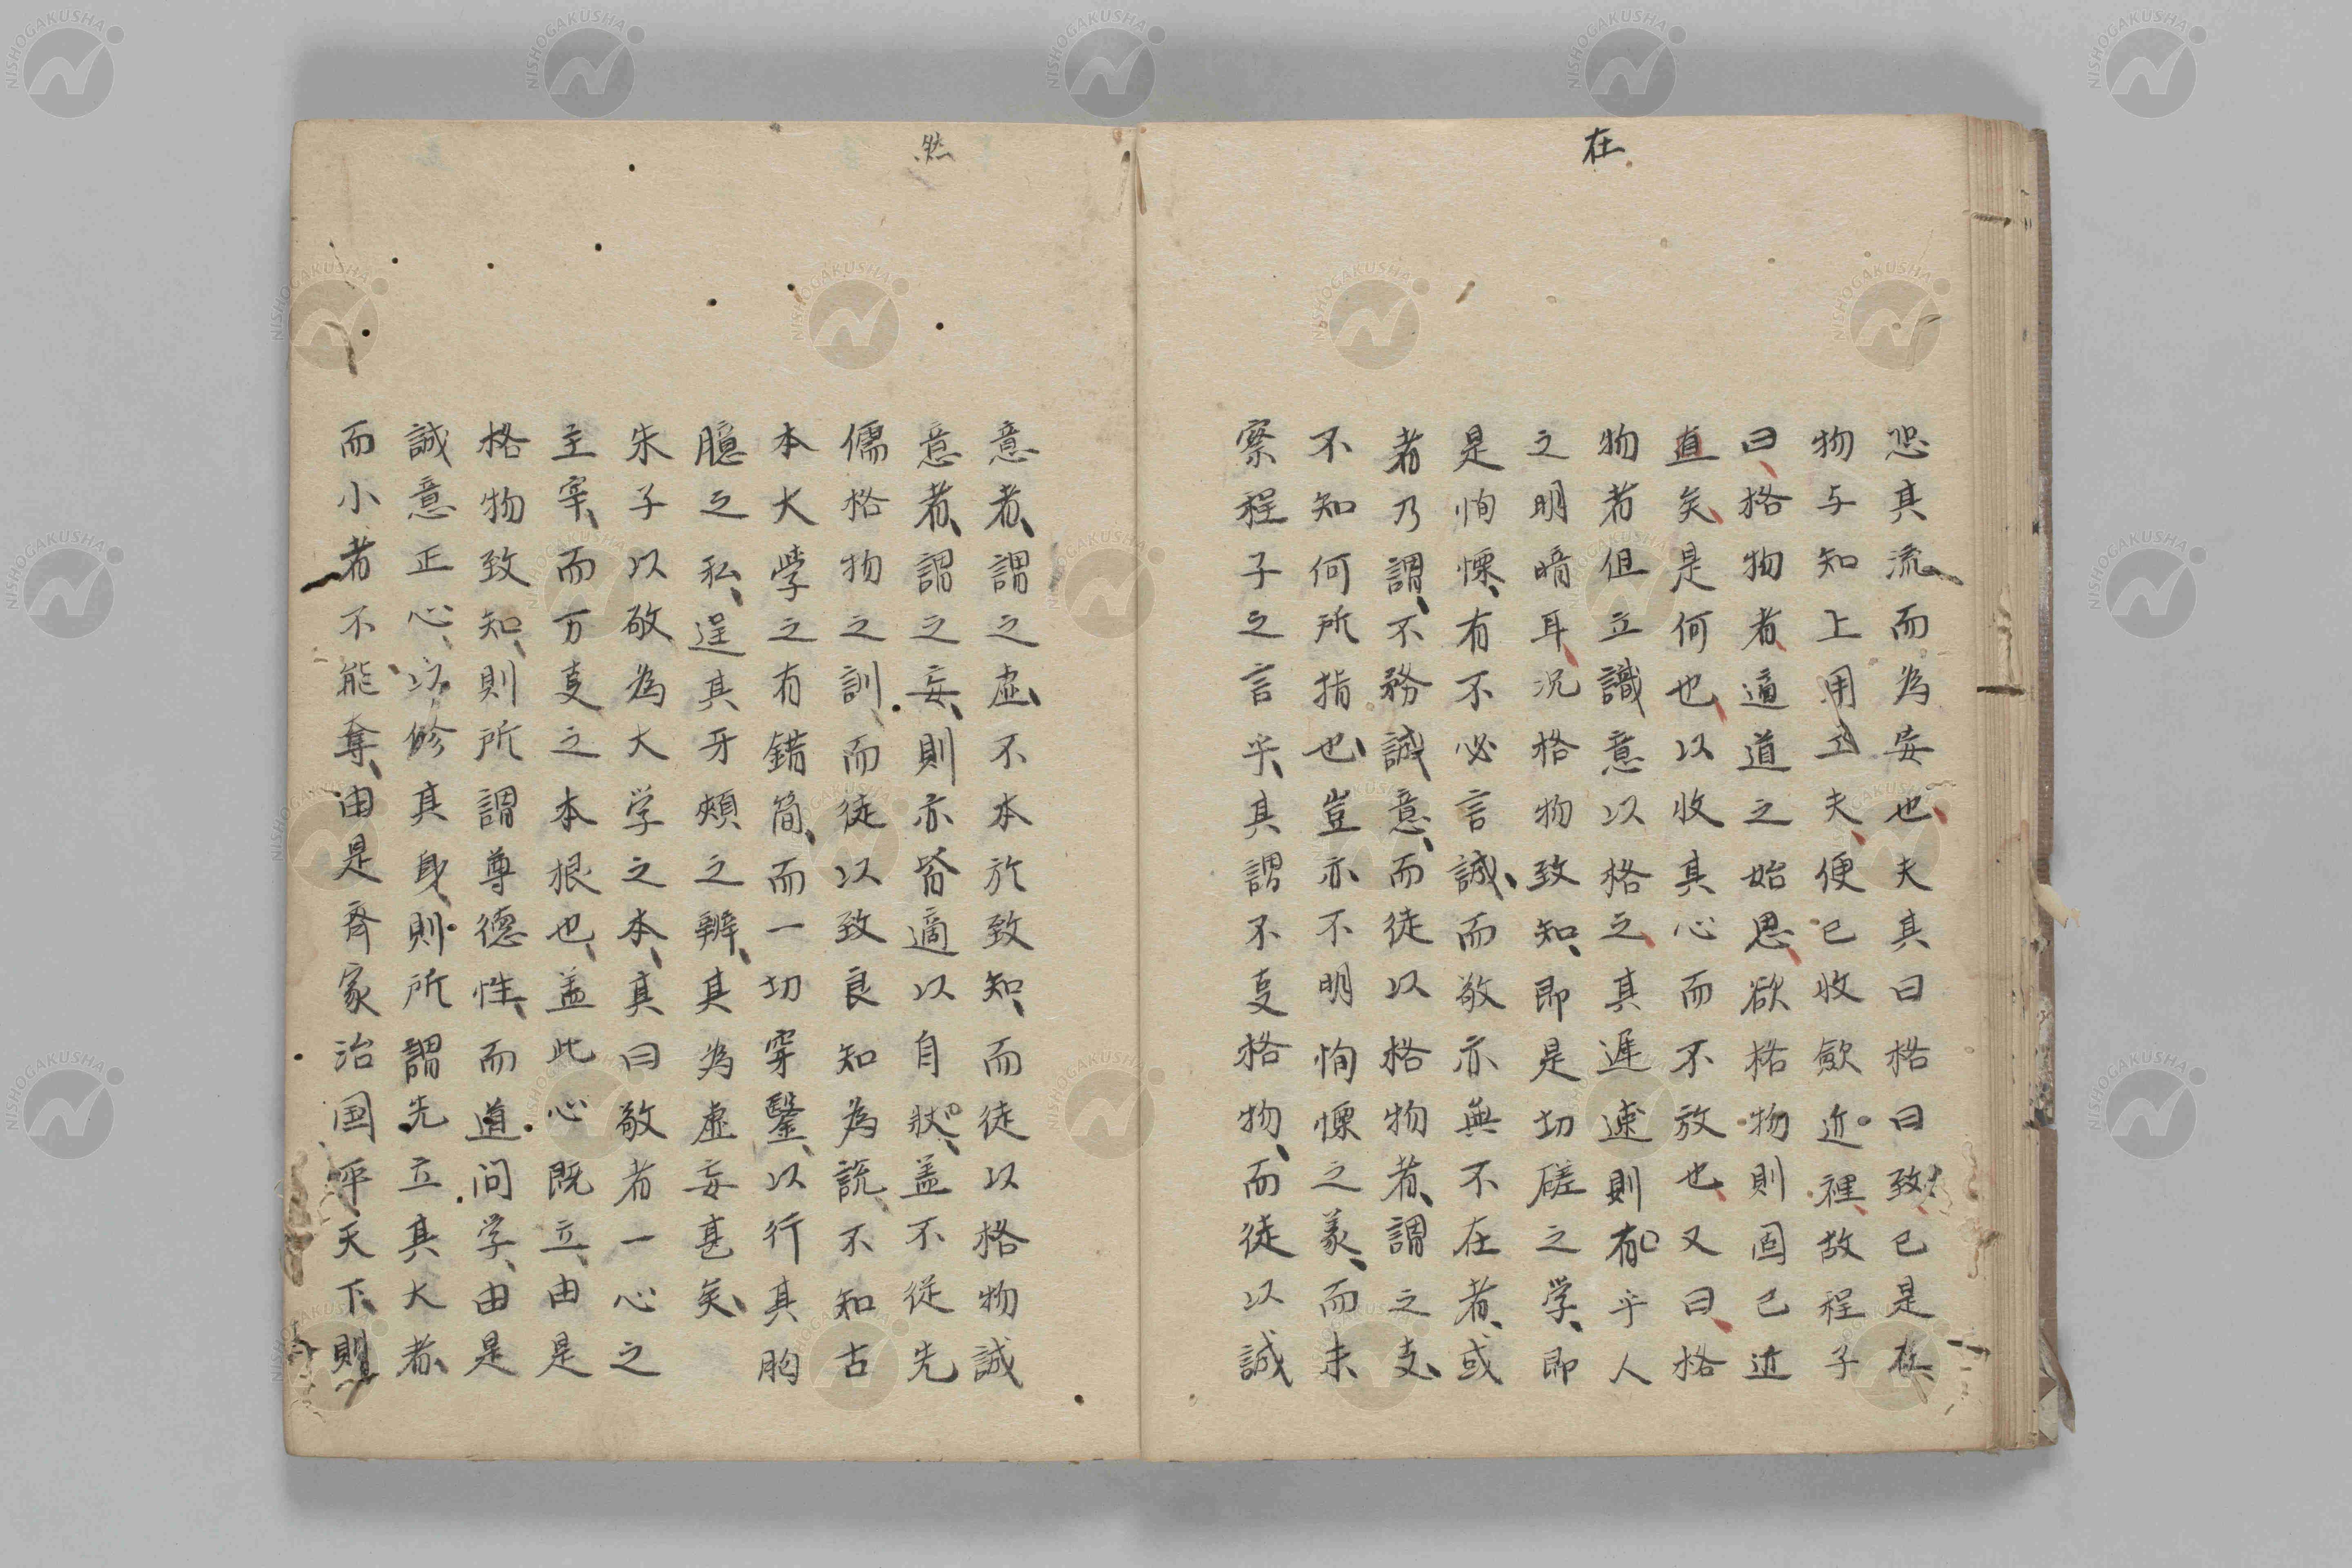 在
恐其流而為妄也夫其曰格曰致已是在
物与知上用工夫便已收斂近裡故程子
曰格物者適道之始思欲格物則固已近
直矣是何也以收其心而不放也又曰格
物者但立識意以格之其遅速則有乎人
之明暗耳況格物致知即是切磋之学即
是恂慄有不必言誠而敬亦無不在者或
者乃謂不務誠意而徒以格物者謂之支
不知何所指也豈亦不明恂慄之義而未
察程子之言乎其謂不支格物而徒以誠
然
意者謂之虚不本於致知而徒以格物誠
意者謂之妄則亦皆適以自狀盖不従先
儒格物之訓而徒以致良知為説不知古
本大學之有錯簡而一切穿鑿以行其胸
臆之私逞其牙頰之辨其為虚妄甚矣
朱子以敬為大学之本其曰敬者一心之
主宰而万㕝之本根也盖此心既立由是
格物致知則所謂尊德性而道问学由是
誠意正心以修其身則所謂先立其大者
而小者不能奪由是斉家治国平天下則
NISHOGAKUSHA